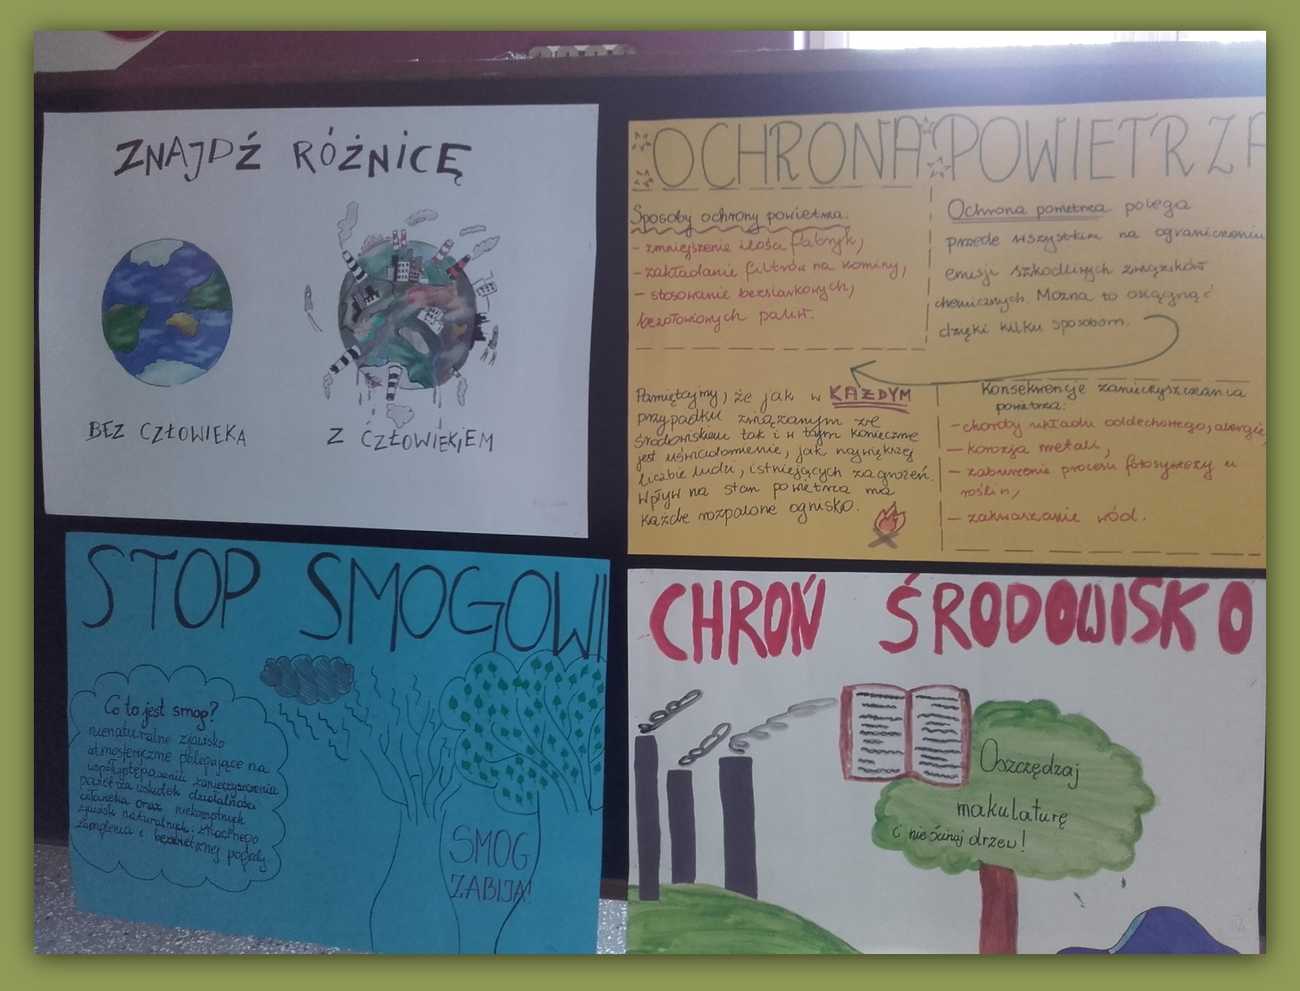 ZNAJDŹ RÓŻNICĘ
BEZ CZŁOWIEKA
Z CZŁOWIEKIEM
OCHRONA POWIETRZA
Sposoby ochrony powietrza:
- zmniejszenie ilości fabryk,
- zakładanie filtrów na kominy,
- stosowanie bezsiarkowych,
bezołowiowych paliw.
Ochrona powietrza polega
przede wszystkim na ograniczeniu
emisji szkodliwych związków
chemicznych. Można to osiągnąć
dzięki kilku sposobom.
Pamiętajmy, że jak w KAŻDYM
przypadku związanym ze
środowiskiem tak i w tym konieczne
jest uświadomienie, jak największej
liczbie ludzi, istniejących zagrożeń.
Wpływ na stan powietrza ma
każde rozpalone ognisko.
Konsekwencje zanieczyszczania
powietrza:
- choroby układu oddechowego, alergie,
- korozja metali,
- zaburzenie procesu fotosyntezy u
roślin,
- zakwaszanie wód.
STOP SMOGOWI
Co to jest smog?
nienaturalne zjawisko
atmosferyczne polegające na
współwystępowaniu zanieczyszczenia
powietrza wskutek działalności
człowieka oraz niekorzystnych
zjawisk naturalnych: znacznego
zamglenia i bezwietrznej pogody
SMOG
ZABIJA!
CHROŃ ŚRODOWISKO
Oszczędzaj
makulaturę
i nie ścinaj drzew!